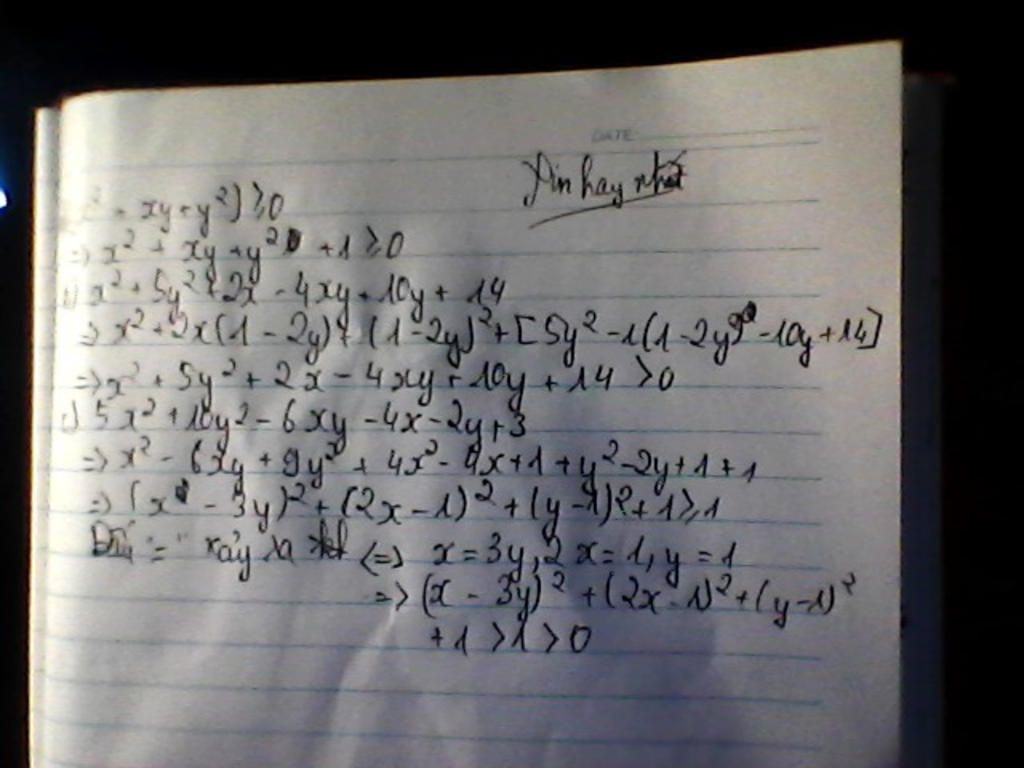 DATE
Xin hay nhất
² - xy + y²) ≥ 0
=> x² + xy + y² + 1 ≥ 0
x² + 5y² + 2x - 4xy + 10y + 14
=> x² + 2x(1 - 2y) + (1 - 2y)² + [5y² - 1(1 - 2y)² - 10y + 14]
=> x² + 5y² + 2x - 4xy + 10y + 14 > 0
5x² + 10y² - 6xy - 4x - 2y + 3
=> x² - 6xy + 9y² + 4x² - 4x + 1 + y² - 2y + 1 + 1
=> (x - 3y)² + (2x - 1)² + (y - 1)² + 1 ≥ 1
"=" xảy ra <=> x = 3y, 2x = 1, y = 1
=> (x - 3y)² + (2x - 1)² + (y - 1)²
+ 1 > 1 > 0